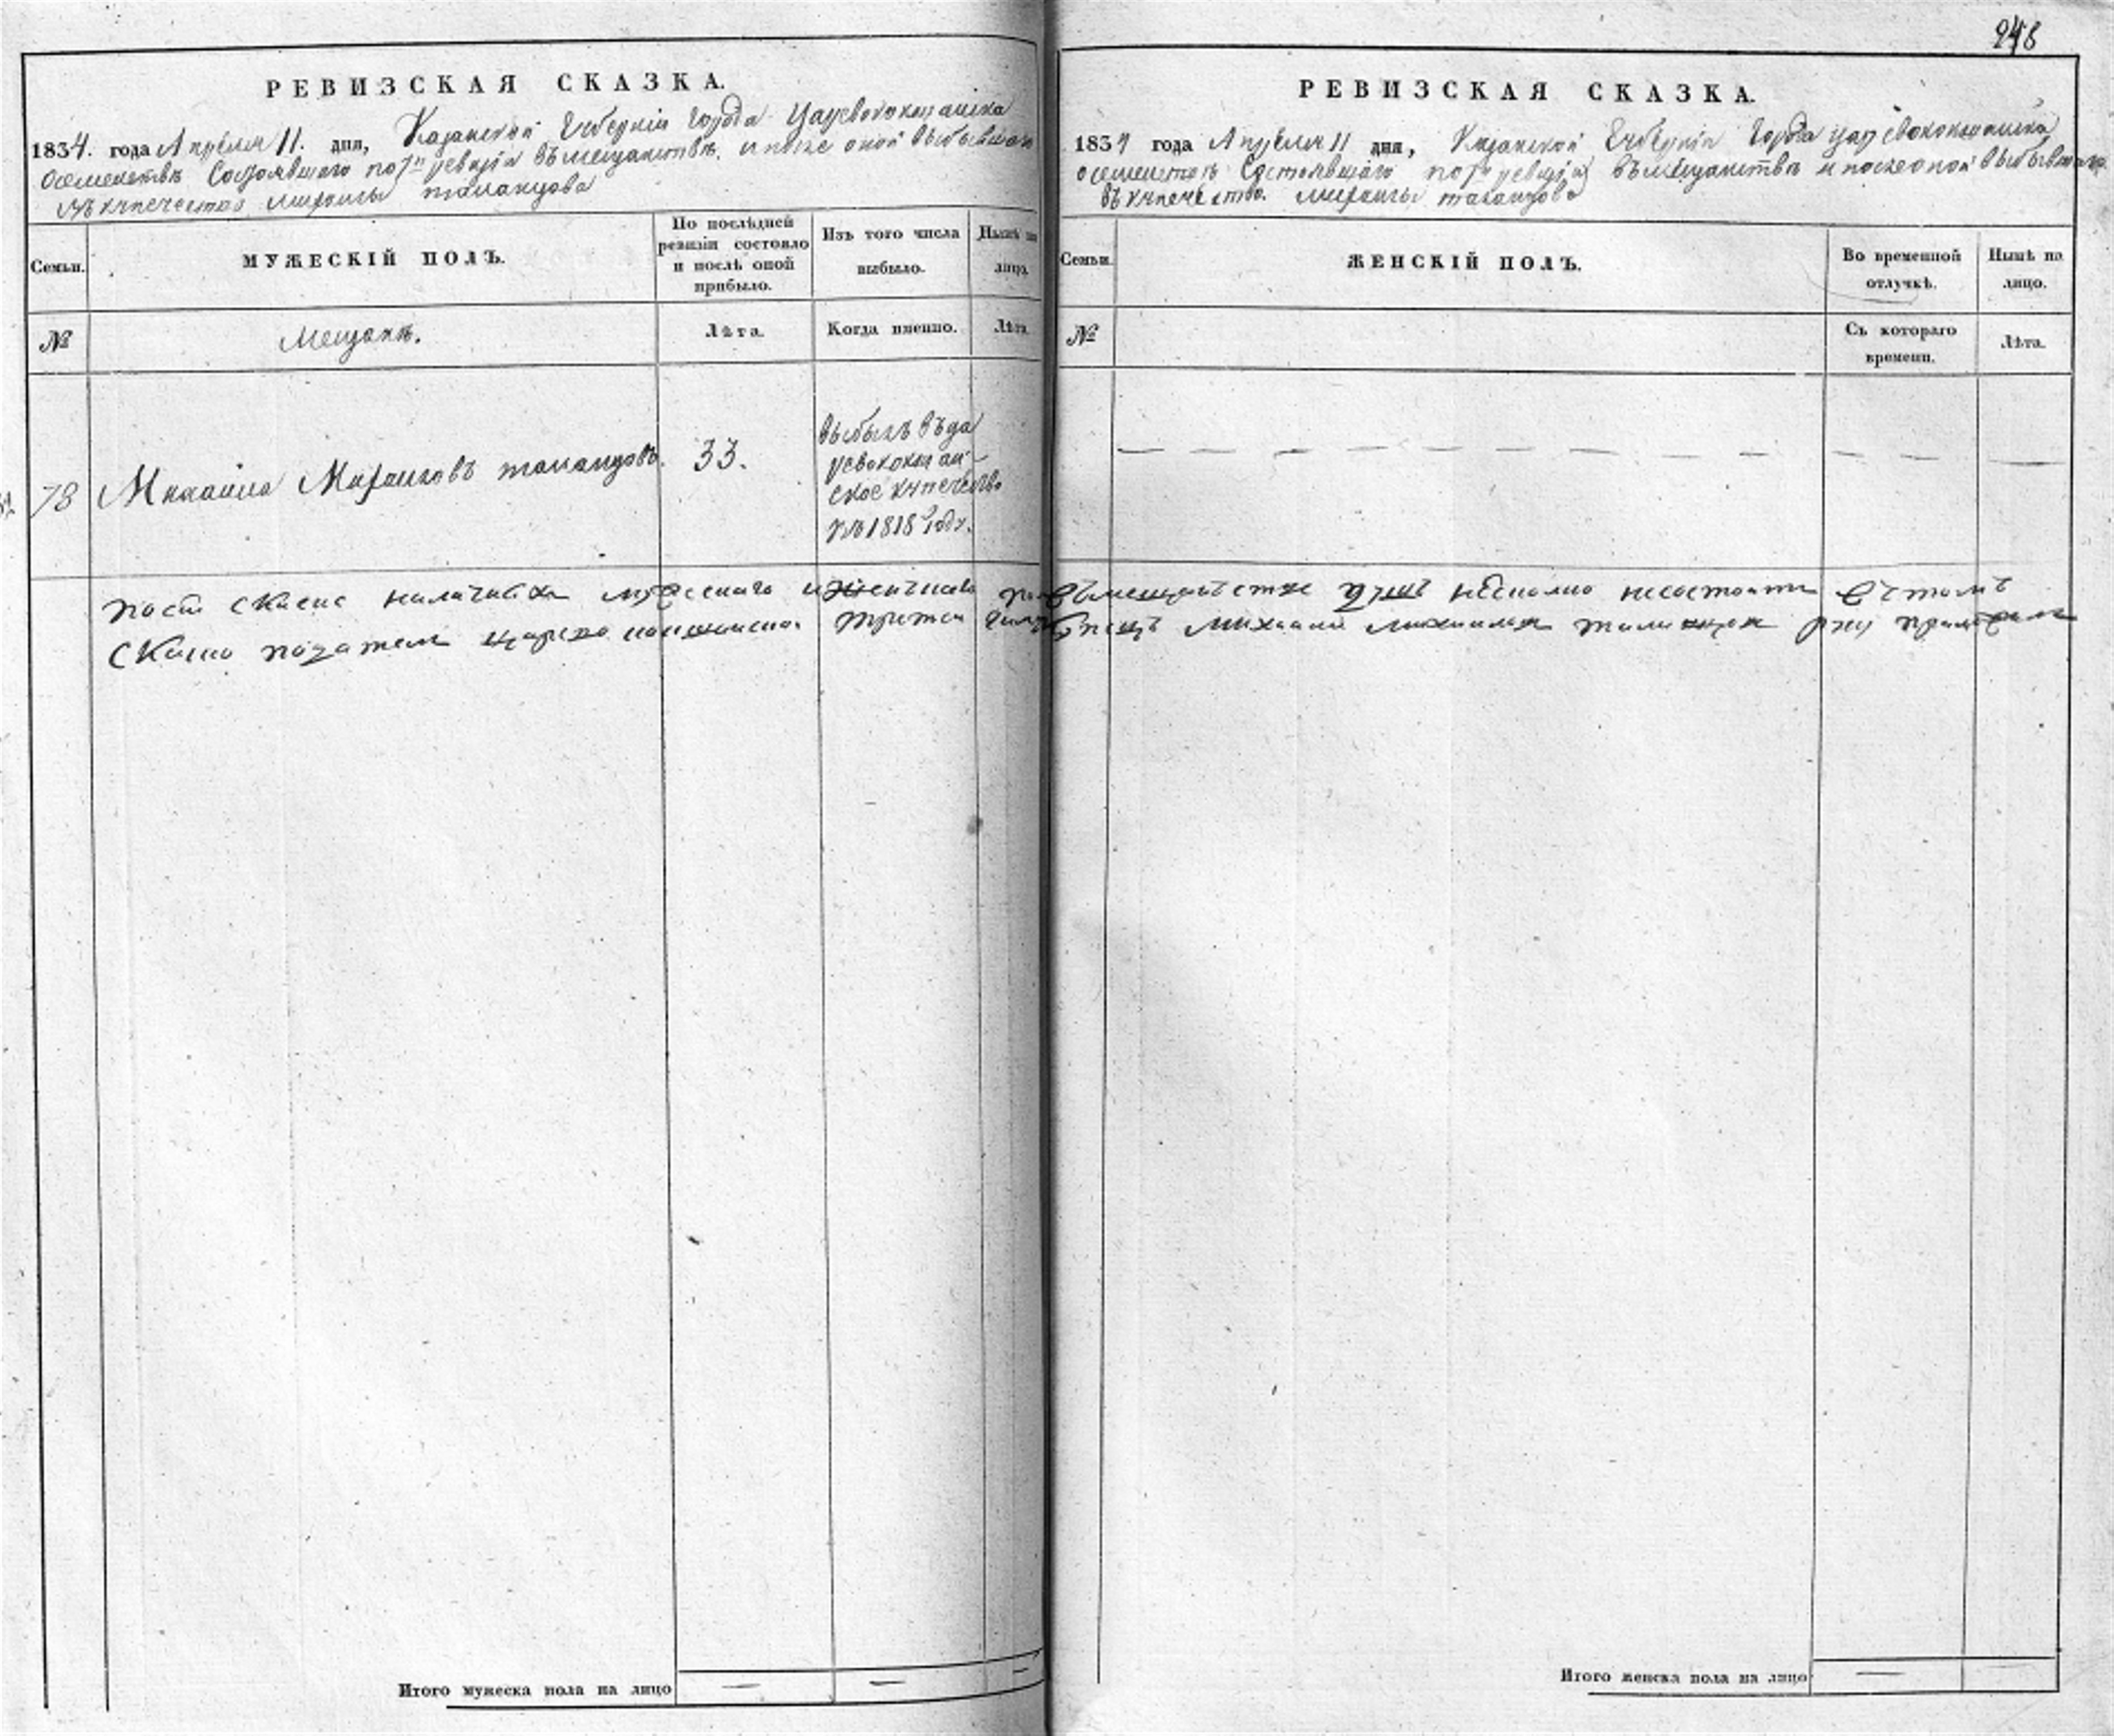 248
РЕВИЗСКАЯ СКАЗКА.
1834. года Апреля 11. дня, Казанской Губерніи города Царевококшайска
осемействе Состоявшаго по 7й ревизіи въ мещанстве, и после оной выбывшаго
въ купечество Михаилы Таланцова
Семьи.
МУЖЕСКІЙ ПОЛЪ.
По послѣдней ревизіи состояло и послѣ оной прибыло.
Изъ того числа выбыло.
Нынѣ на лицо.
№
Мещане.
Лѣта.
Когда именно.
Лѣта.
78
Михайла Михайловъ таланцовъ.
33.
выбылъ въ ца
ревококшай-
ское купечество
въ 1818 году.
Итого мужеска пола на лицо
— —
РЕВИЗСКАЯ СКАЗКА.
1834 года Апреля 11 дня, Казанской Губерніи города царевококшайска
осемействе Состоявшаго по 7й ревизіи въ мещанстве и после оной выбывшаго
въ купечество. Михаилы таланцова
Семьи.
ЖЕНСКІЙ ПОЛЪ.
Во временной отлучкѣ.
Нынѣ на лицо.
№
Съ котораго времени.
Лѣта.
— — — — — — — — — — — —
Итого женска пола на лицо
—
сказке наличныхъ мужескаго и женскаго въ мещанстве душъ не состоитъ въ томъ
Сказке третей Михайла Михайловъ таланцовъ руку